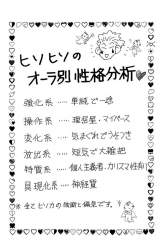 ヒソヒソの
オーラ別性格分析♥
強化系 ‥‥ 単純で一途
操作系 ‥‥ 理屈屋・マイペース
変化系 ‥‥ 気まぐれでうそつき
放出系 ‥‥ 短気で大雑把
特質系 ‥‥ 個人主義者・カリスマ性有り
具現化系 ‥‥ 神経質
※全てヒソカの独断と偏見です。